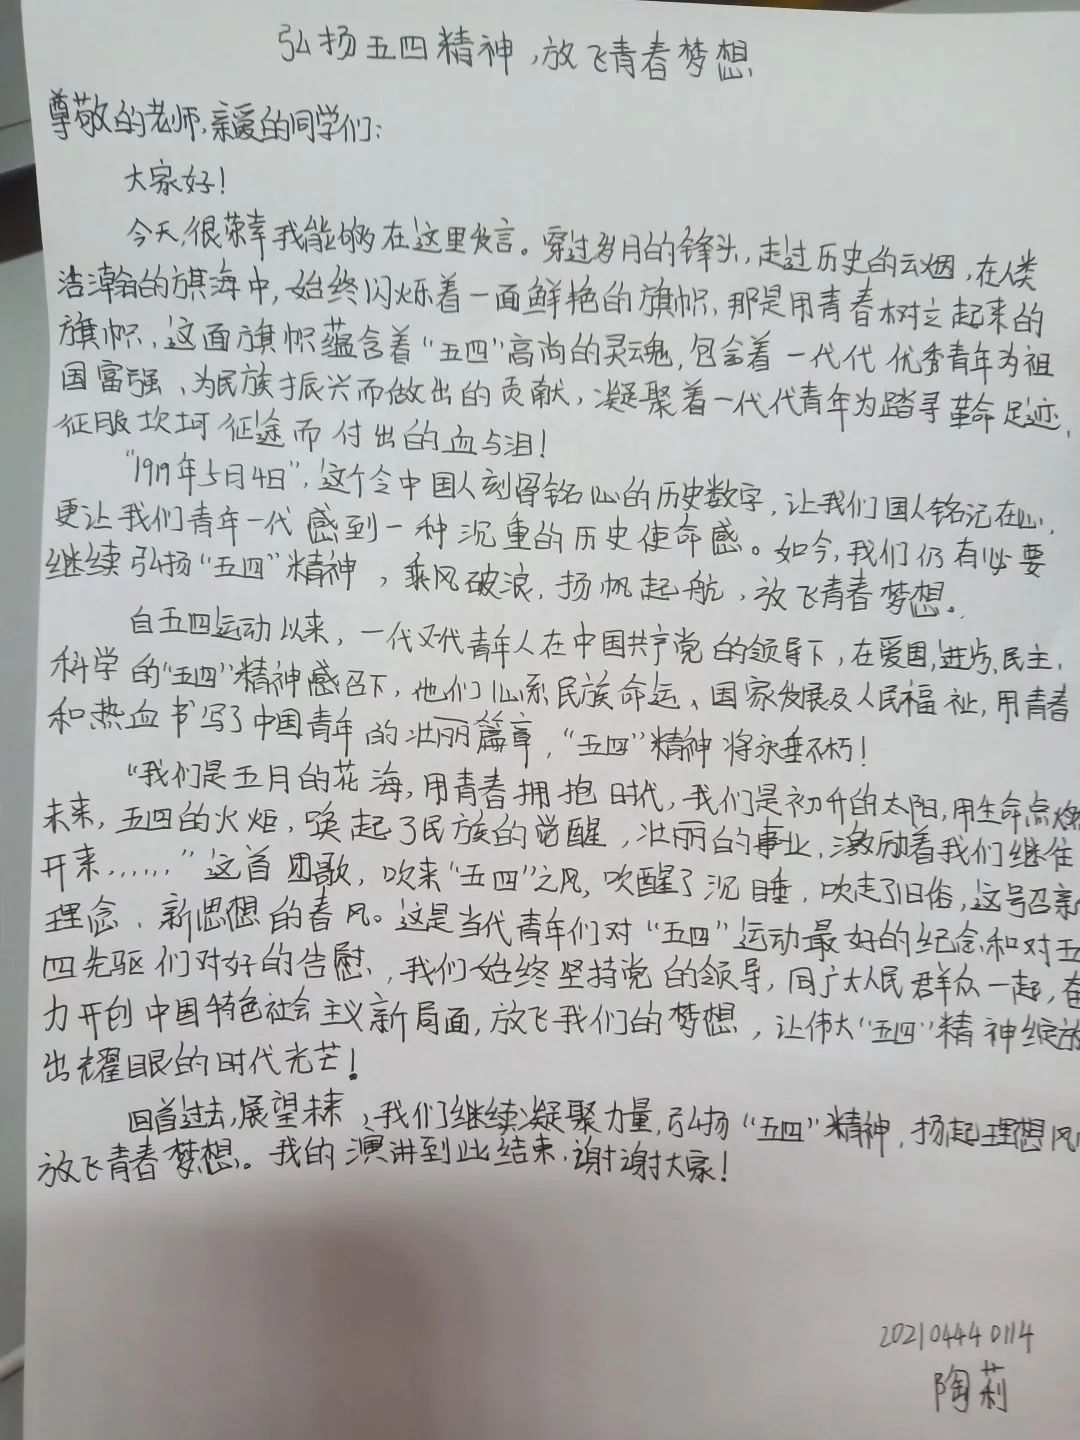 弘扬五四精神,放飞青春梦想
尊敬的老师,亲爱的同学们:
大家好!
今天,很荣幸我能够在这里发言。穿过岁月的锋头,走过历史的云烟,在人类
浩瀚的旗海中,始终闪烁着一面鲜艳的旗帜,那是用青春树立起来的
旗帜,这面旗帜蕴含着“五四”高尚的灵魂,包含着一代代优秀青年为祖
国富强、为民族振兴而做出的贡献,凝聚着一代代青年为踏寻革命足迹,
征服坎坷征途而付出的血与泪!
“1919年5月4日”,这个令中国人刻骨铭心的历史数字,让我们国人铭记在心,
更让我们青年一代感到一种沉重的历史使命感。如今,我们仍有必要
继续弘扬“五四”精神,乘风破浪,扬帆起航,放飞青春梦想。
自五四运动以来,一代又代青年人在中国共产党的领导下,在爱国,进步,民主,
科学的“五四”精神感召下,他们心系民族命运、国家发展及人民福祉,用青春
和热血书写了中国青年的壮丽篇章,“五四”精神将永垂不朽!
“我们是五月的花海,用青春拥抱时代,我们是初升的太阳,用生命点燃
未来,五四的火炬,唤起了民族的觉醒,壮丽的事业,激励着我们继往
开来......”这首团歌,吹来“五四”之风,吹醒了沉睡,吹走了旧俗,这号召新
理念、新思想的春风。这是当代青年们对“五四”运动最好的纪念和对五
四先驱们对好的告慰,我们始终坚持党的领导,同广大人民群众一起,奋
力开创中国特色社会主义新局面,放飞我们的梦想,让伟大“五四”精神绽放
出耀眼的时代光芒!
回首过去,展望未来,我们继续凝聚力量,弘扬“五四”精神,扬起理想风
放飞青春梦想。我的演讲到此结束,谢谢大家!
202104440114
陶莉